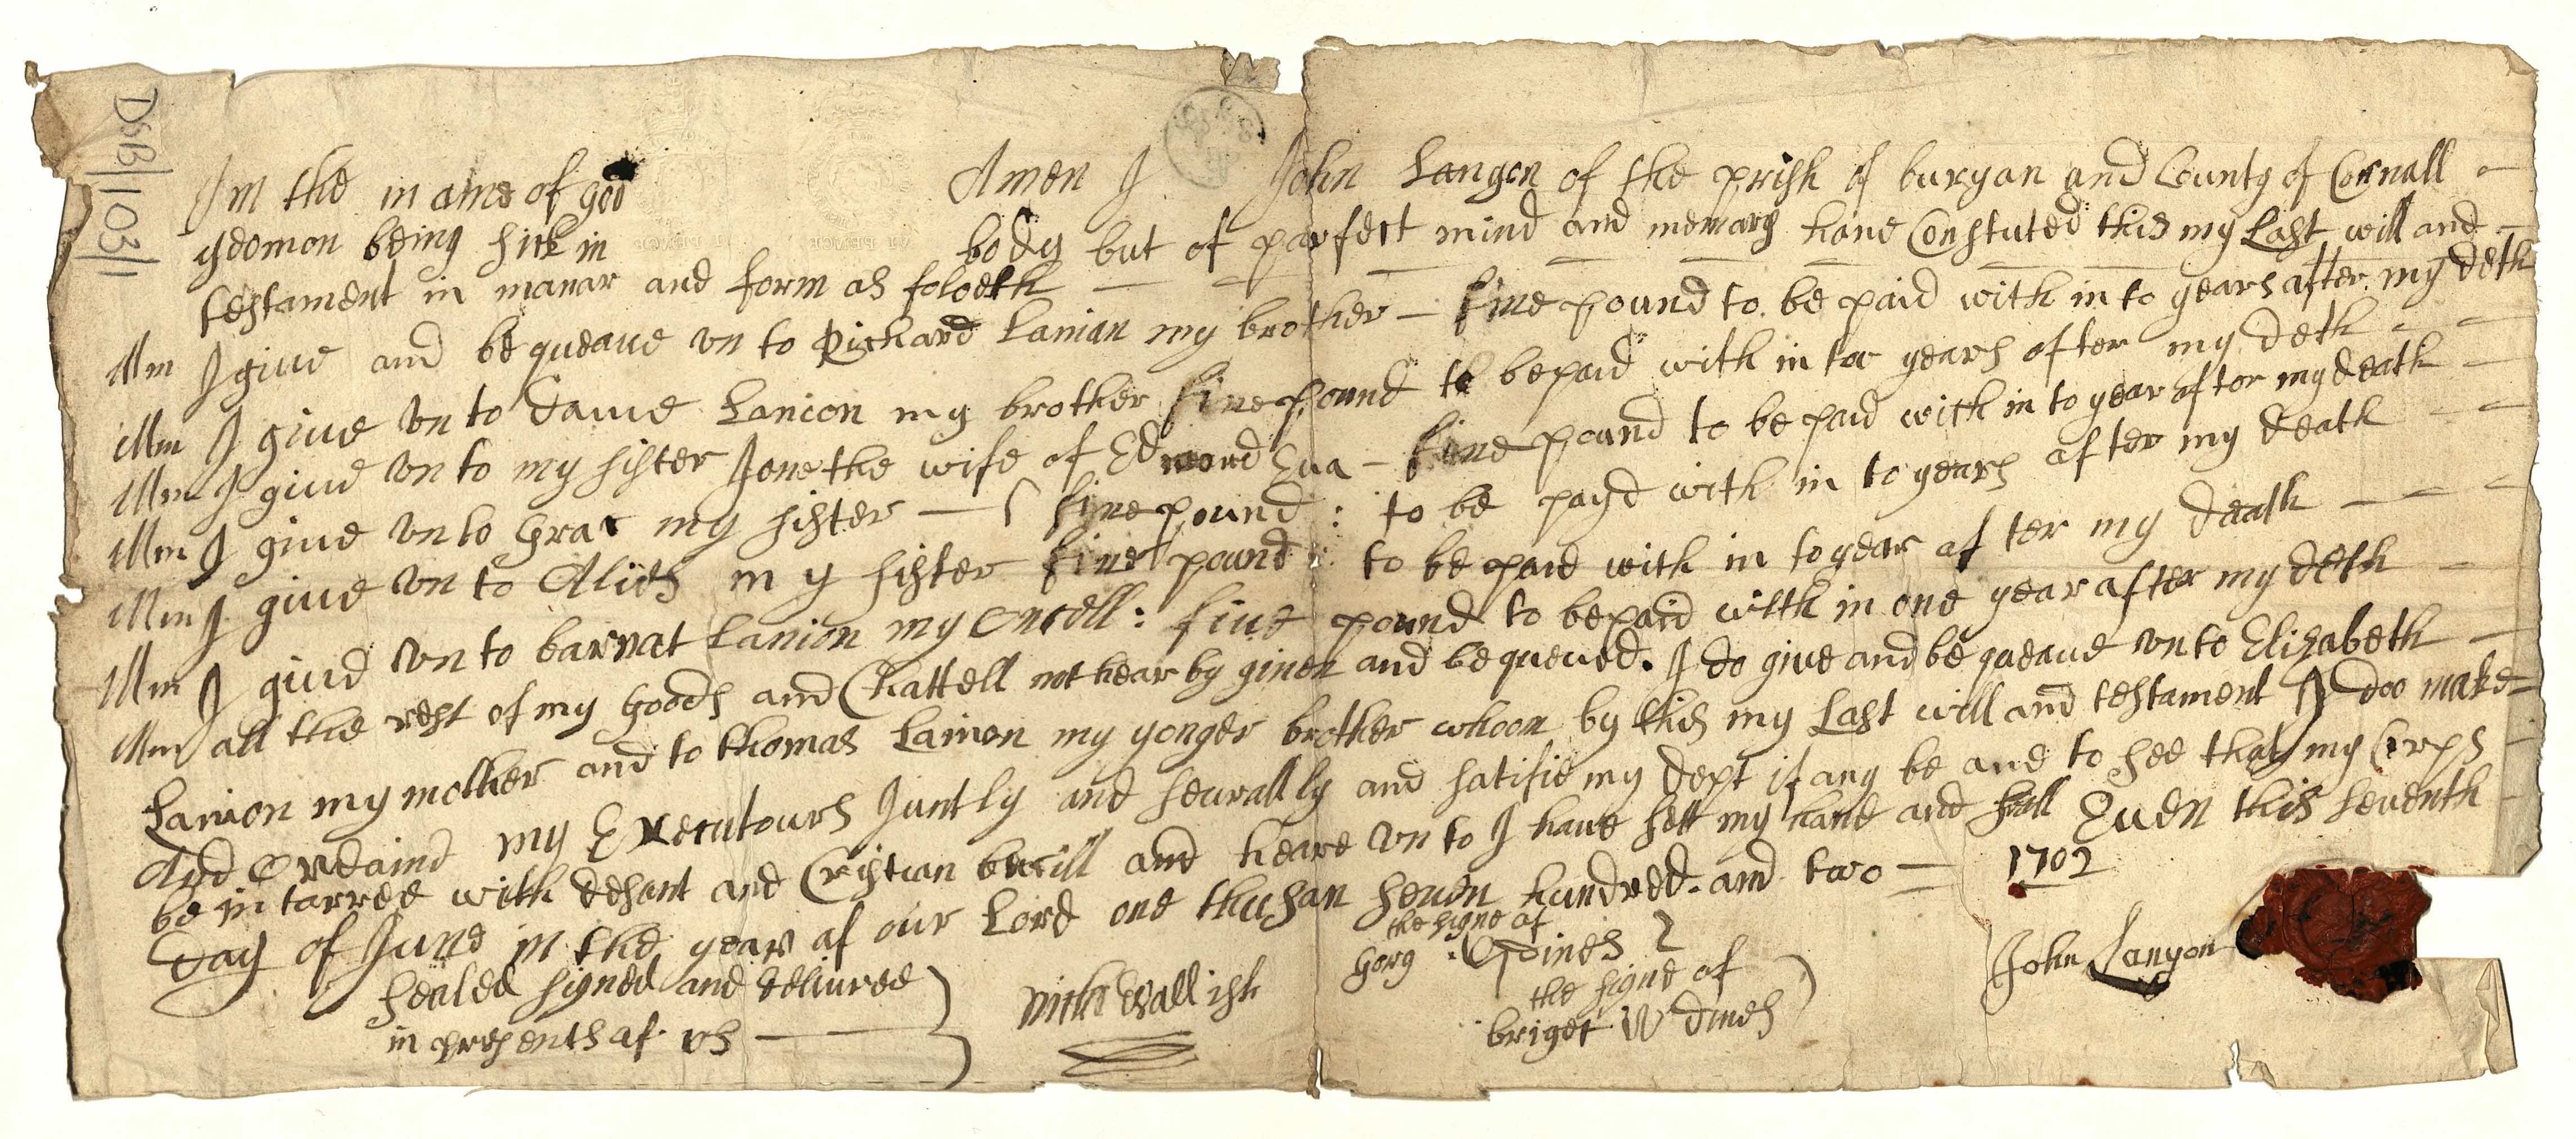 DSB/103/1
In the in ame of god Amen I John Langon of the prish of buryan and County of Cornall
yeomon being sick in body but of parfect mind and memary have Constuted this my Last will and
testament in manar and form as foloeth
Mm I give and be queave vn to Richard Lanian my brother five pound to be paid with in to years after my deth
Mm I give vn to Dauie Lanion my brother five pound to be paid with in too years after my deth
Mm I give vn to my sister Jone the wife of Edmord Eva five pound to be paid with in to year after my death
Mm I give vn to Grac my sister five pound : to be payd with in to years after my death
Mm I give vn to Alies my sister five pound : to be paid with in to year af ter my death
Mm I give vn to barnat Lanion my oncell : five pound to be paid with in one year after my deth
Mm all the rest of my goods and Chattell not hear by given and be queved. I do give and be queave vn to Elizabeth
Lanion my mother and to thomas Lanion my yonger brother whoon by this my Last will and testament I doo make
And ordaind my Executours Juntly and sevrally and satifie my dept if any be and to see that my Corps
be in tarred with desant and Cristian berill and heare vn to I have sett my hand and sell Even this seventh
Day of June in the year of our Lord one thusan seven hundred and two 1702
sealed signed and delivred
in presents af vs
Nicho Wallish
the signe of
Gorg Opines
the signe of
briget W Dines
John Lanyon